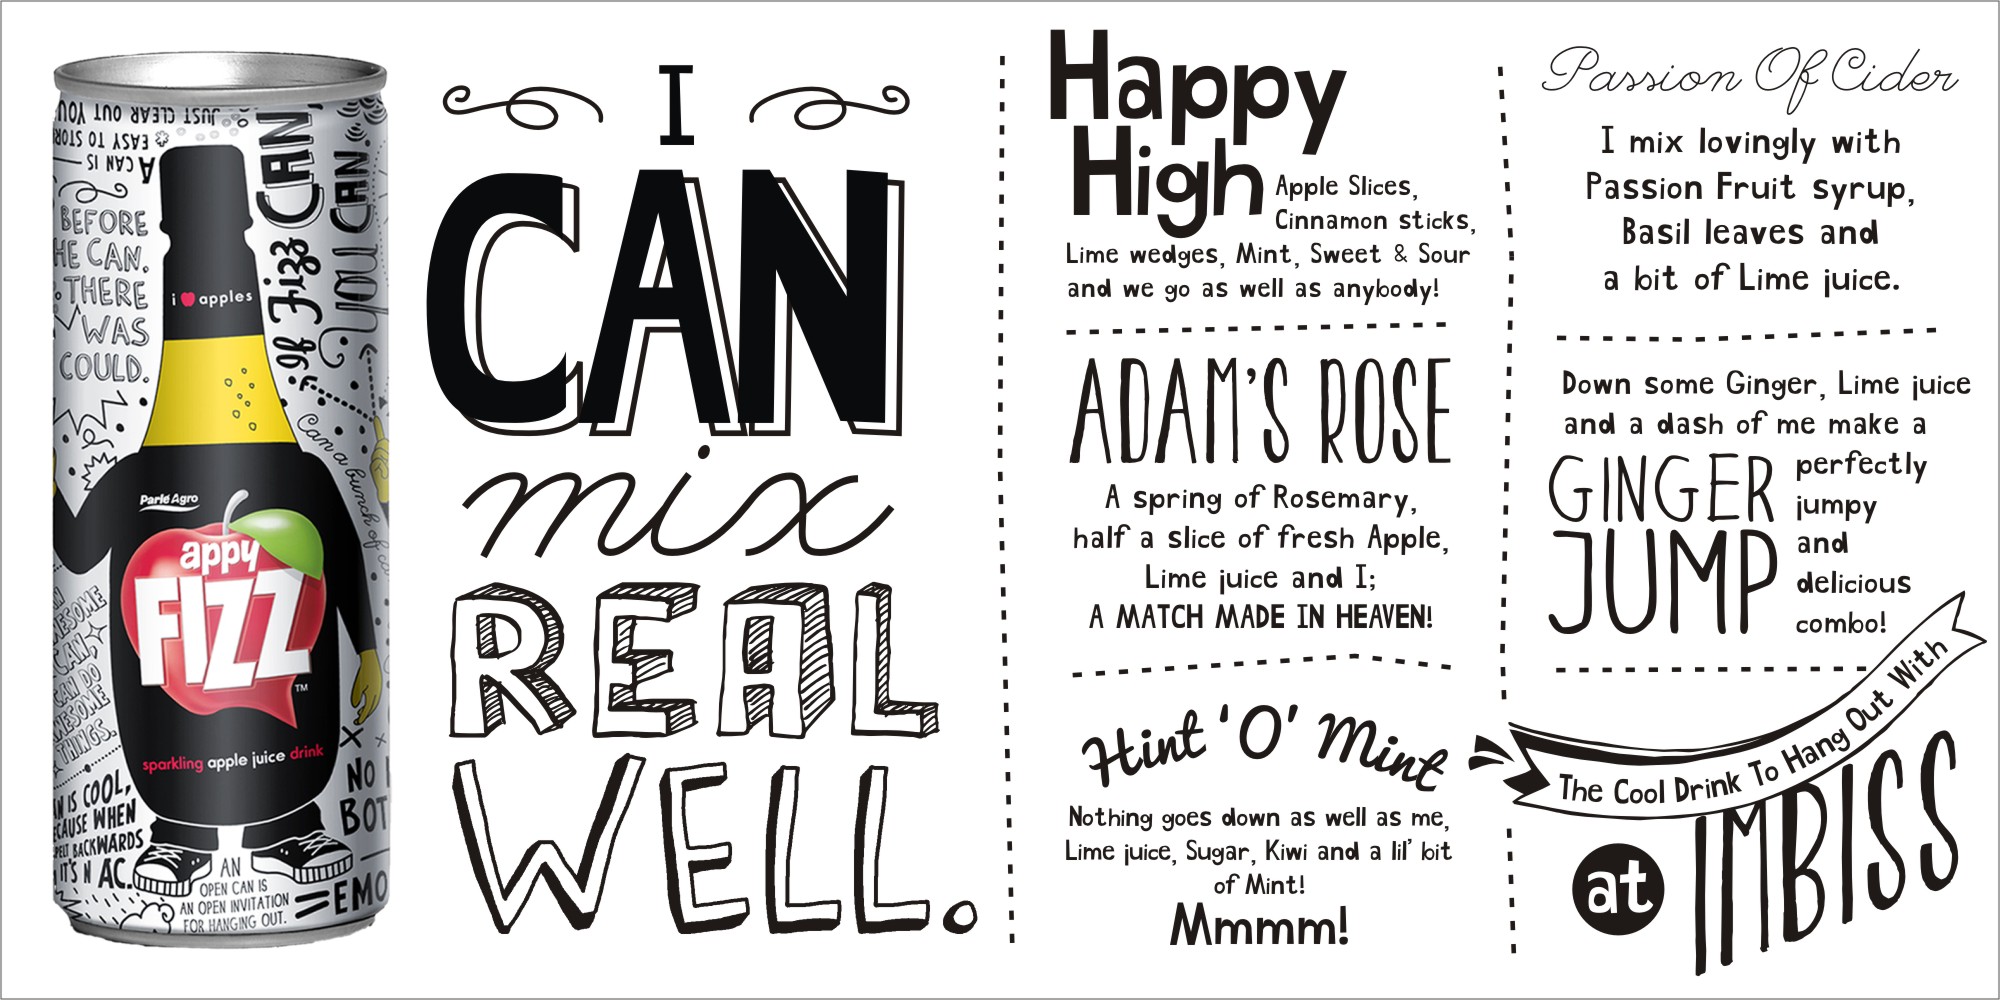 JUST CLEAR OUT YOU
EASY TO STOR
A CAN IS
BEFORE
HE CAN.
THERE
WAS
COULD.
CAN
of Fizz
YOU CAN.
Can a bunch of
i apples
Parle Agro
appy
FIZZ
TM
sparkling apple juice drink
AWESOME
CAN,
CAN DO
AWESOME
THINGS.
N IS COOL,
ECAUSE WHEN
PELT BACKWARDS
IT'S N AC.
AN
OPEN CAN IS
AN OPEN INVITATION
FOR HANGING OUT.
NO
BOT
EMO
I
CAN
mix
REAL
WELL.
Happy
High
Apple Slices,
Cinnamon sticks,
Lime wedges, Mint, Sweet & Sour
and we go as well as anybody!
ADAM'S ROSE
A spring of Rosemary,
half a slice of fresh Apple,
Lime juice and I;
A MATCH MADE IN HEAVEN!
Hint 'O' Mint
Nothing goes down as well as me,
Lime juice, Sugar, Kiwi and a lil' bit
of Mint!
Mmmm!
Passion Of Cider
I mix lovingly with
Passion Fruit syrup,
Basil leaves and
a bit of Lime juice.
Down some Ginger, Lime juice
and a dash of me make a
GINGER
JUMP
perfectly
jumpy
and
delicious
combo!
The Cool Drink To Hang Out With
at IMBISS